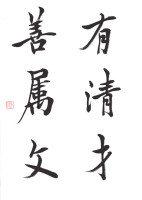 有清才
善属文